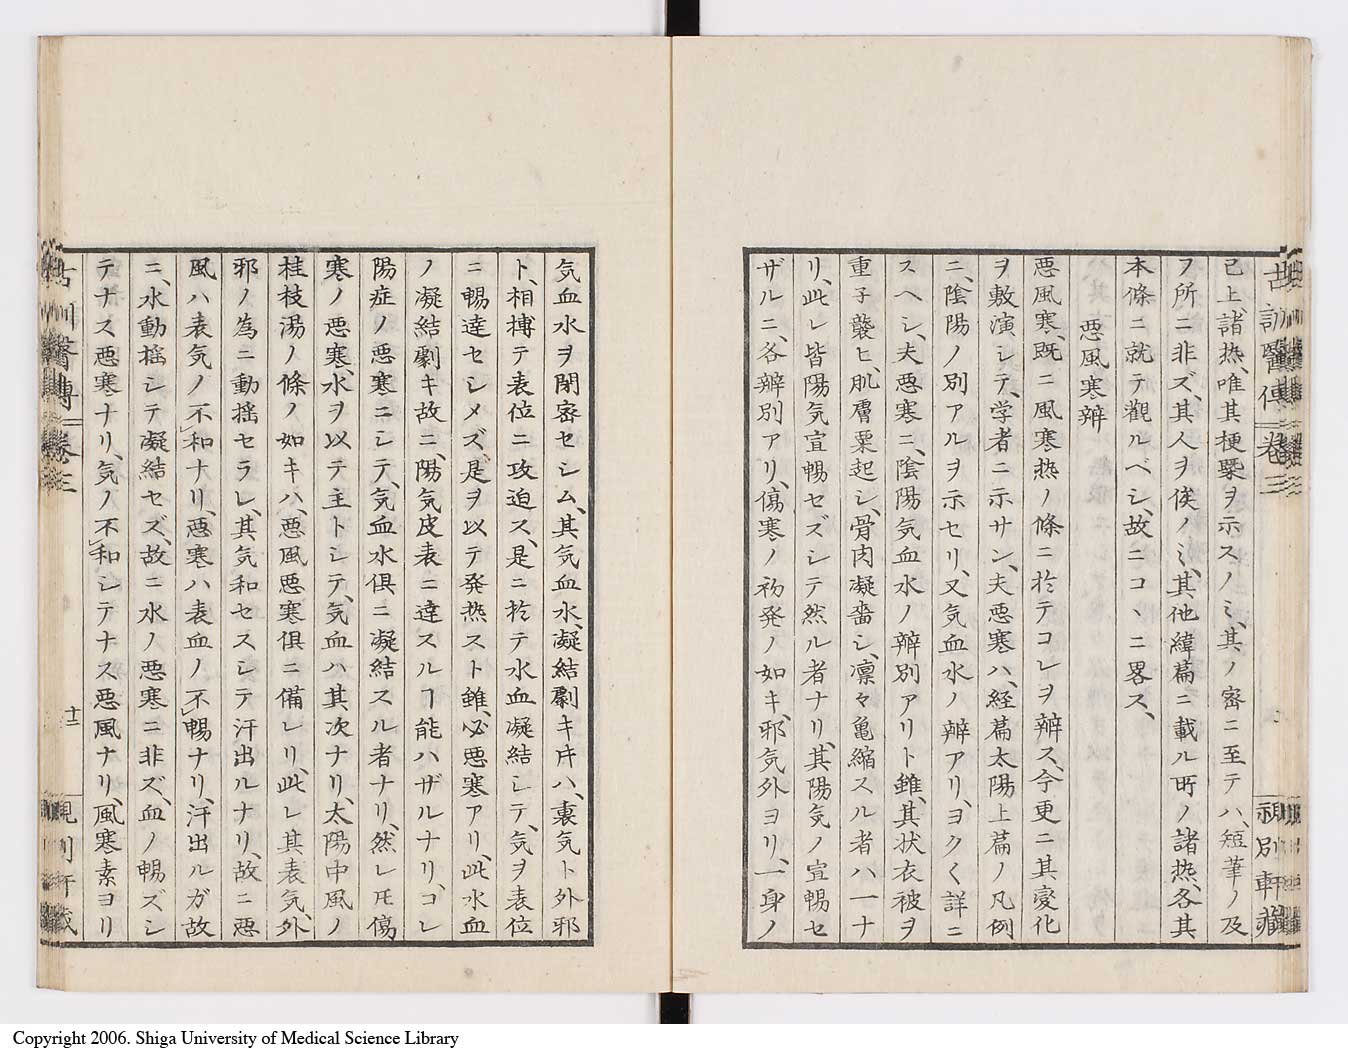 古訓醫傳 卷三
視別軒藏
已上、諸热、唯其梗槩ヲ示スノミ、其ノ密ニ至テハ、短筆ノ及
フ所ニ非ズ、其人ヲ俟ノミ、其他緯篇ニ載ル所ノ諸热、各其
本條ニ就テ觀ルベシ、故ニコヽニ畧ス、
悪風寒辨
悪風寒、既ニ風寒热ノ條ニ於テコレヲ辨ス、今更ニ其變化
ヲ敷演シテ、学者ニ示サン、夫悪寒ハ、経篇太陽上篇ノ凡例
ニ、陰陽ノ別アルヲ示セリ、又気血水ノ辨アリ、ヨクく詳ニ
スヘシ、夫悪寒ニ、陰陽気血水ノ辨別アリト雖、其状衣被ヲ
重子襲ヒ、肌膚粟起シ、骨肉凝嗇シ、凛々亀縮スル者ハ一ナ
リ、此レ皆陽気宣暢セズシテ然ル者ナリ、其陽気ノ宣暢セ
ザルニ、各辨別アリ、傷寒ノ初発ノ如キ、邪気外ヨリ、一身ノ
気血水ヲ閉密セシム、其気血水、凝結劇キ片ハ、裏気ト外邪
ト、相搏テ表位ニ攻迫ス、是ニ於テ水血凝結シテ、気ヲ表位
ニ暢達セシメズ、是ヲ以テ発热スト雖、必悪寒アリ、此水血
ノ凝結劇キ故ニ、陽気皮表ニ達スルヿ能ハザルナリ、コレ
陽症ノ悪寒ニシテ、気血水倶ニ凝結スル者ナリ、然レ𪜈傷
寒ノ悪寒、水ヲ以テ主トシテ、気血ハ其次ナリ、太陽中風ノ
桂枝湯ノ條ノ如キハ、悪風悪寒倶ニ備レリ、此レ其表気、外
邪ノ為ニ動揺セラレ、其気和セスシテ汗出ルナリ、故ニ悪
風ハ表気ノ不和ナリ、悪寒ハ表血ノ不暢ナリ、汗出ルガ故
ニ、水動揺シテ凝結セズ、故ニ水ノ悪寒ニ非ズ、血ノ暢ズシ
テナス悪寒ナリ、気ノ不和シテナス悪風ナリ、風寒素ヨリ
古訓醫傳 卷三
十二